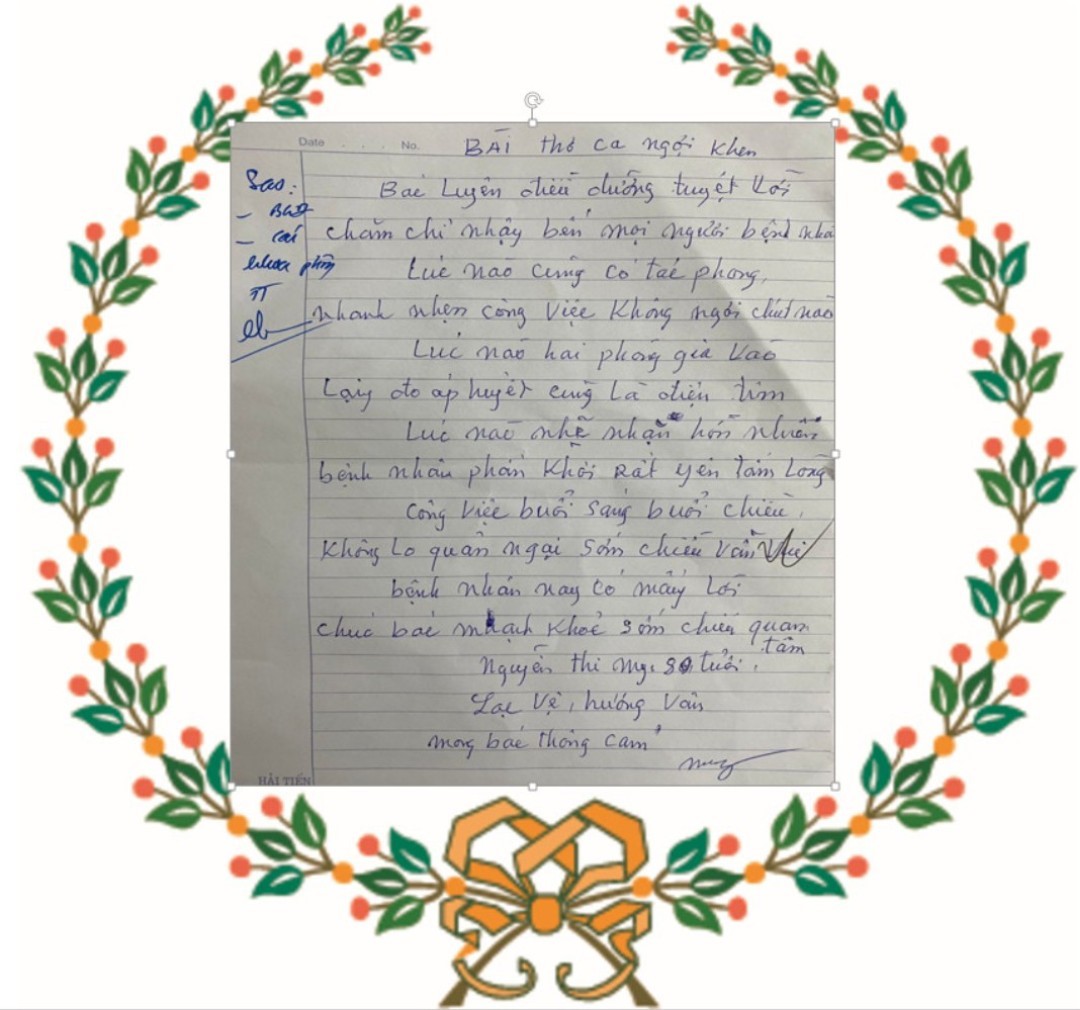 Date . . . . No.
BÀI thơ ca ngợi khen
Sao:
Bác Luyên điều dưỡng tuyệt vời
- BGĐ
chăm chỉ nhậy bén mọi người bệnh nhâ
- các
khoa phòng
Lúc nào cũng có tác phong,
nhanh nhẹn công việc không ngơi chút nào
Lúc nào hai phòng già vào
Lạy đo áp huyết cũng Là điện tim
Lúc nào nhẽ nhặn hồn nhiên
bệnh nhân phấn khởi Rất yên tâm Lòng
công việc buổi sáng buổi chiều,
Không Lo quản ngại sớm chiều vẫn vui
bệnh nhân nay có mấy Lời
chúc bác mạnh khoẻ sớm chiều quan
tâm
Nguyễn thị Mỵ 80 tuổi,
Lạc Vệ, hương Vân
mong bác thông cảm
HẢI TIẾN